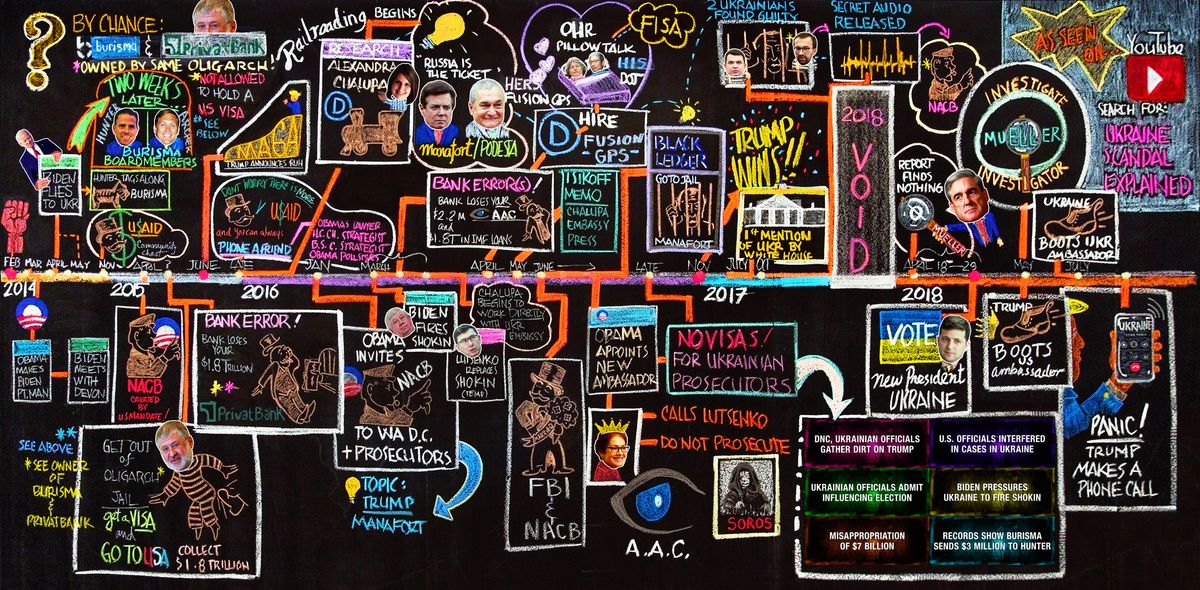 BY CHANCE:
burisma &
PrivatBank
*OWNED BY SAME OLIGARCH!
TWO WEEKS
LATER
HUNTER
ARCHER
BURISMA
BOARD MEMBERS
*NOT ALLOWED
TO HOLD A
US VISA
**SEE
BELOW
BIDEN
FLIES
TO UKR
HUNTER TAGS ALONG
BURISMA
USAID
Community
chest
Railroading
BEGINS
MAGA
TRUMP ANNOUNCES RUN
RESEARCH
ALEXANDRA
CHALUPA
D
"RUSSIA IS
THE TICKET"
Manafort/PODESTA
DON'T WORRY THERE IS MORE
USAID
and you can always
PHONE A FRIEND
OBAMA'S LAWYER
H.C. STRATEGIST
B.S. C. STRATEGIST
OBAMA POLLSTERS
OHR
PILLOW TALK
HERS
FUSION GPS
HIS
DOJ
FISA
D HIRE
FUSION
GPS-
BANK ERROR(S)!
BANK LOSES
$2.2 M AAC
and
1.8T IN IMF LOANS
ISIKOFF
MEMO
CHALUPA
EMBASSY
PRESS
BLACK
LEDGER
GO TO JAIL
MANAFORT
2 UKRAINIANS
FOUND GUILTY
SECRET AUDIO
RELEASED
NACB
TRUMP
WINS!!
1ST MENTION
OF UKR BY
WHITE HOUSE
2018
VOID
INVESTIGATE
MUELLER
INVESTIGATOR
REPORT
FINDS
NOTHING
MUELLER
UKRAINE
BOOTS UKR
AMBASSADOR
AS SEEN
ON
YouTube
SEARCH FOR:
UKRAINE
SCANDAL
EXPLAINED
FEB MAR APRIL MAY NOV APRIL JUNE LATE JAN MARCH APRIL MAY JUNE LATE NOV JULY OCT APRIL 18-29 MAY JULY
2014 2015 2016 2017 2018
OBAMA
MAKES
BIDEN
PT. MAN
BIDEN
MEETS
WITH
DEVON
NACB
CREATED
BY
US MANDATE!
BANK ERROR!
BANK LOSES
YOUR
$1.8 TRILLION
PrivatBank
OBAMA
INVITES
NACB
TO WA D.C.
+ PROSECUTORS
BIDEN
FIRES
SHOKIN
LUTSENKO
REPLACES
SHOKIN
(TEMP)
CHALUPA
BEGINS TO
WORK DIRECTLY
WITH UKR
EMBASSY
TOPIC:
TRUMP
MANAFORT
FBI
&
NACB
OBAMA
APPOINTS
NEW
AMBASSADOR
NO VISAS!
FOR UKRAINIAN
PROSECUTORS
CALLS LUTSENKO
DO NOT PROSECUTE
A.A.C.
SOROS
VOTE
new President
UKRAINE
TRUMP
BOOTS
US
ambassador
UKRAINE
PANIC!
TRUMP
MAKES A
PHONE CALL
**
SEE ABOVE
*SEE OWNER
OF
BURISMA
&
PRIVATBANK
GET OUT
of
OLIGARCH*
JAIL
get a VISA
and
GO TO USA
COLLECT
$1.8 TRILLION
DNC, UKRAINIAN OFFICIALS
GATHER DIRT ON TRUMP
U.S. OFFICIALS INTERFERED
IN CASES IN UKRAINE
UKRAINIAN OFFICIALS ADMIT
INFLUENCING ELECTION
BIDEN PRESSURES
UKRAINE TO FIRE SHOKIN
MISAPPROPRIATION
OF $7 BILLION
RECORDS SHOW BURISMA
SENDS $3 MILLION TO HUNTER